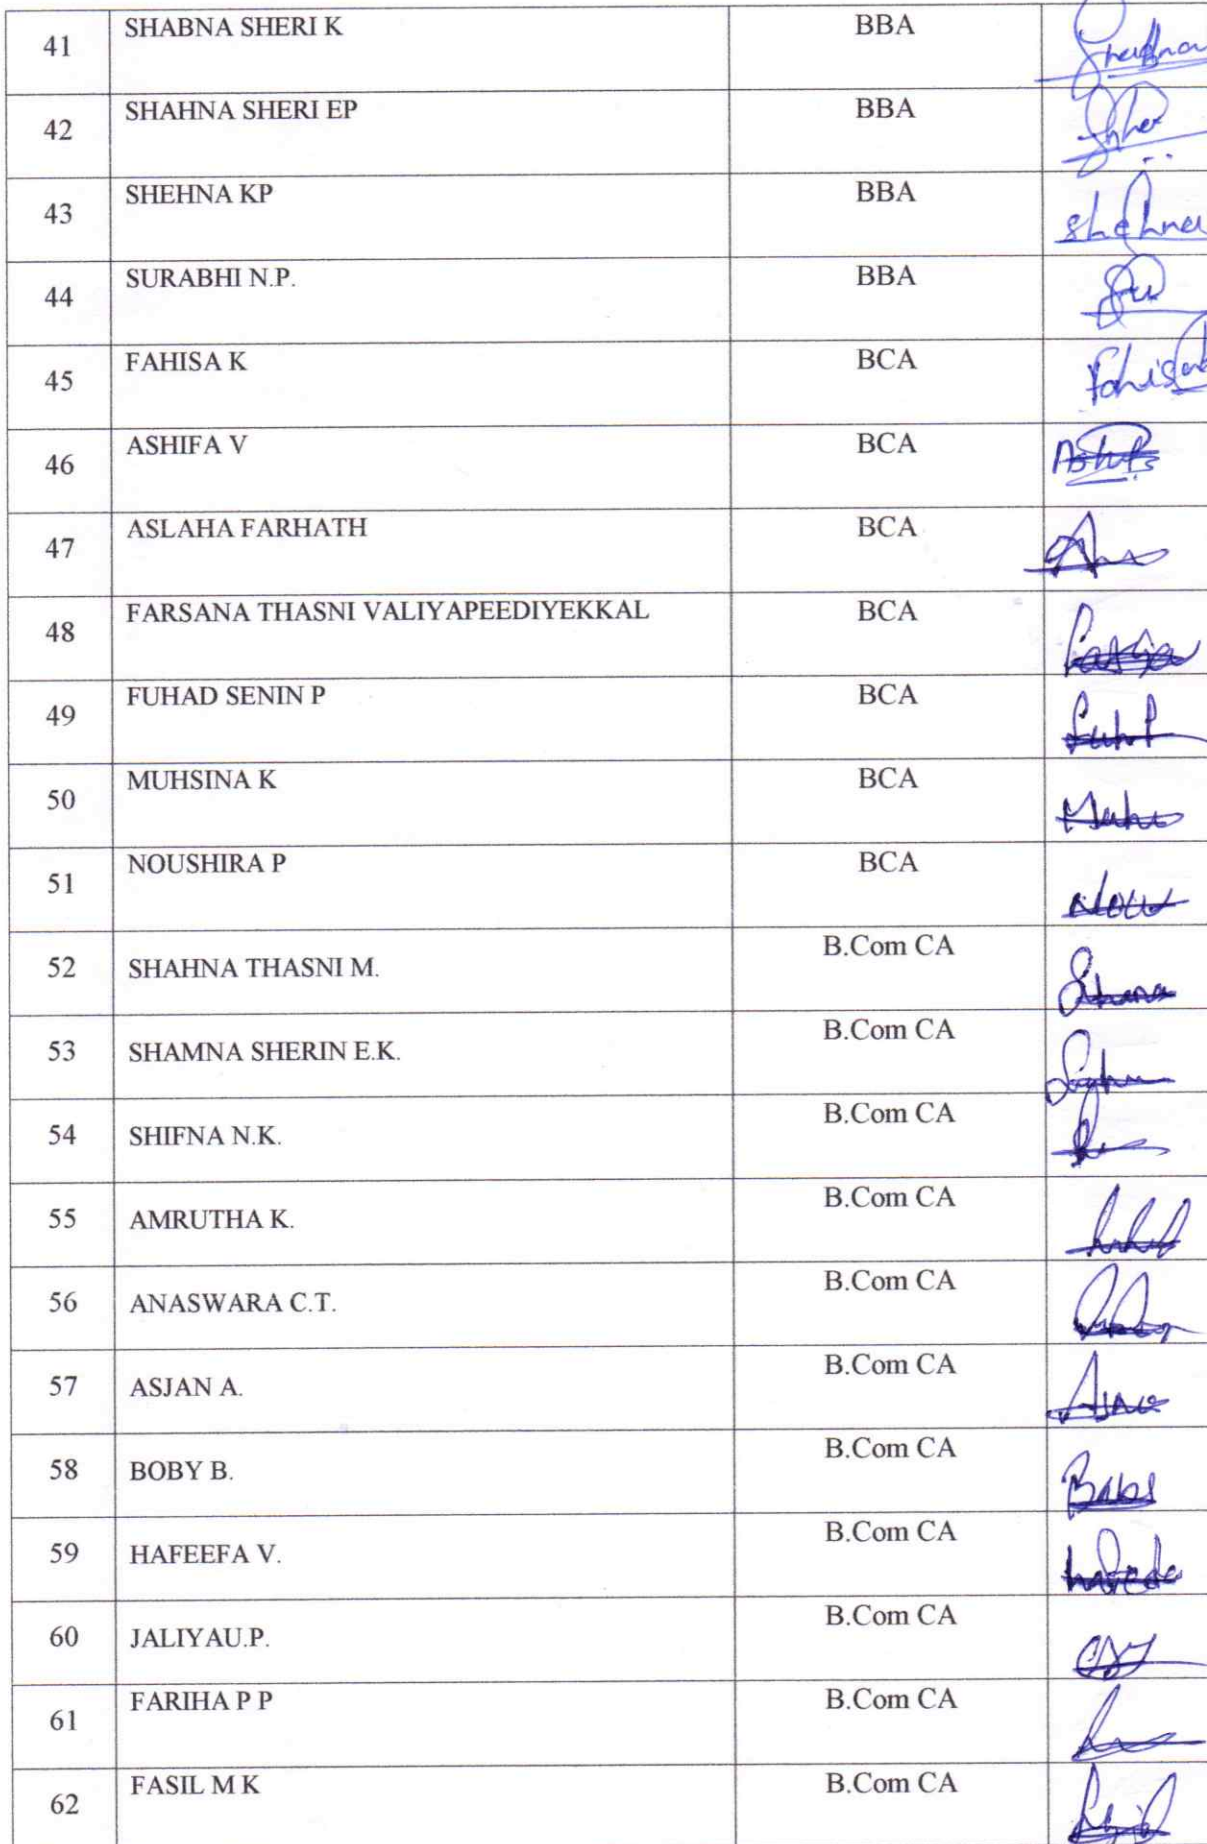 41 SHABNA SHERI K BBA
42 SHAHNA SHERI EP BBA
43 SHEHNA KP BBA shehna
44 SURABHI N.P. BBA
45 FAHISA K BCA
46 ASHIFA V BCA
47 ASLAHA FARHATH BCA
48 FARSANA THASNI VALIYAPEEDIYEKKAL BCA
49 FUHAD SENIN P BCA
50 MUHSINA K BCA
51 NOUSHIRA P BCA
52 SHAHNA THASNI M. B.Com CA
53 SHAMNA SHERIN E.K. B.Com CA
54 SHIFNA N.K. B.Com CA
55 AMRUTHA K. B.Com CA
56 ANASWARA C.T. B.Com CA
57 ASJAN A. B.Com CA
58 BOBY B. B.Com CA
59 HAFEEFA V. B.Com CA
60 JALIYAU.P. B.Com CA
61 FARIHA P P B.Com CA
62 FASIL M K B.Com CA